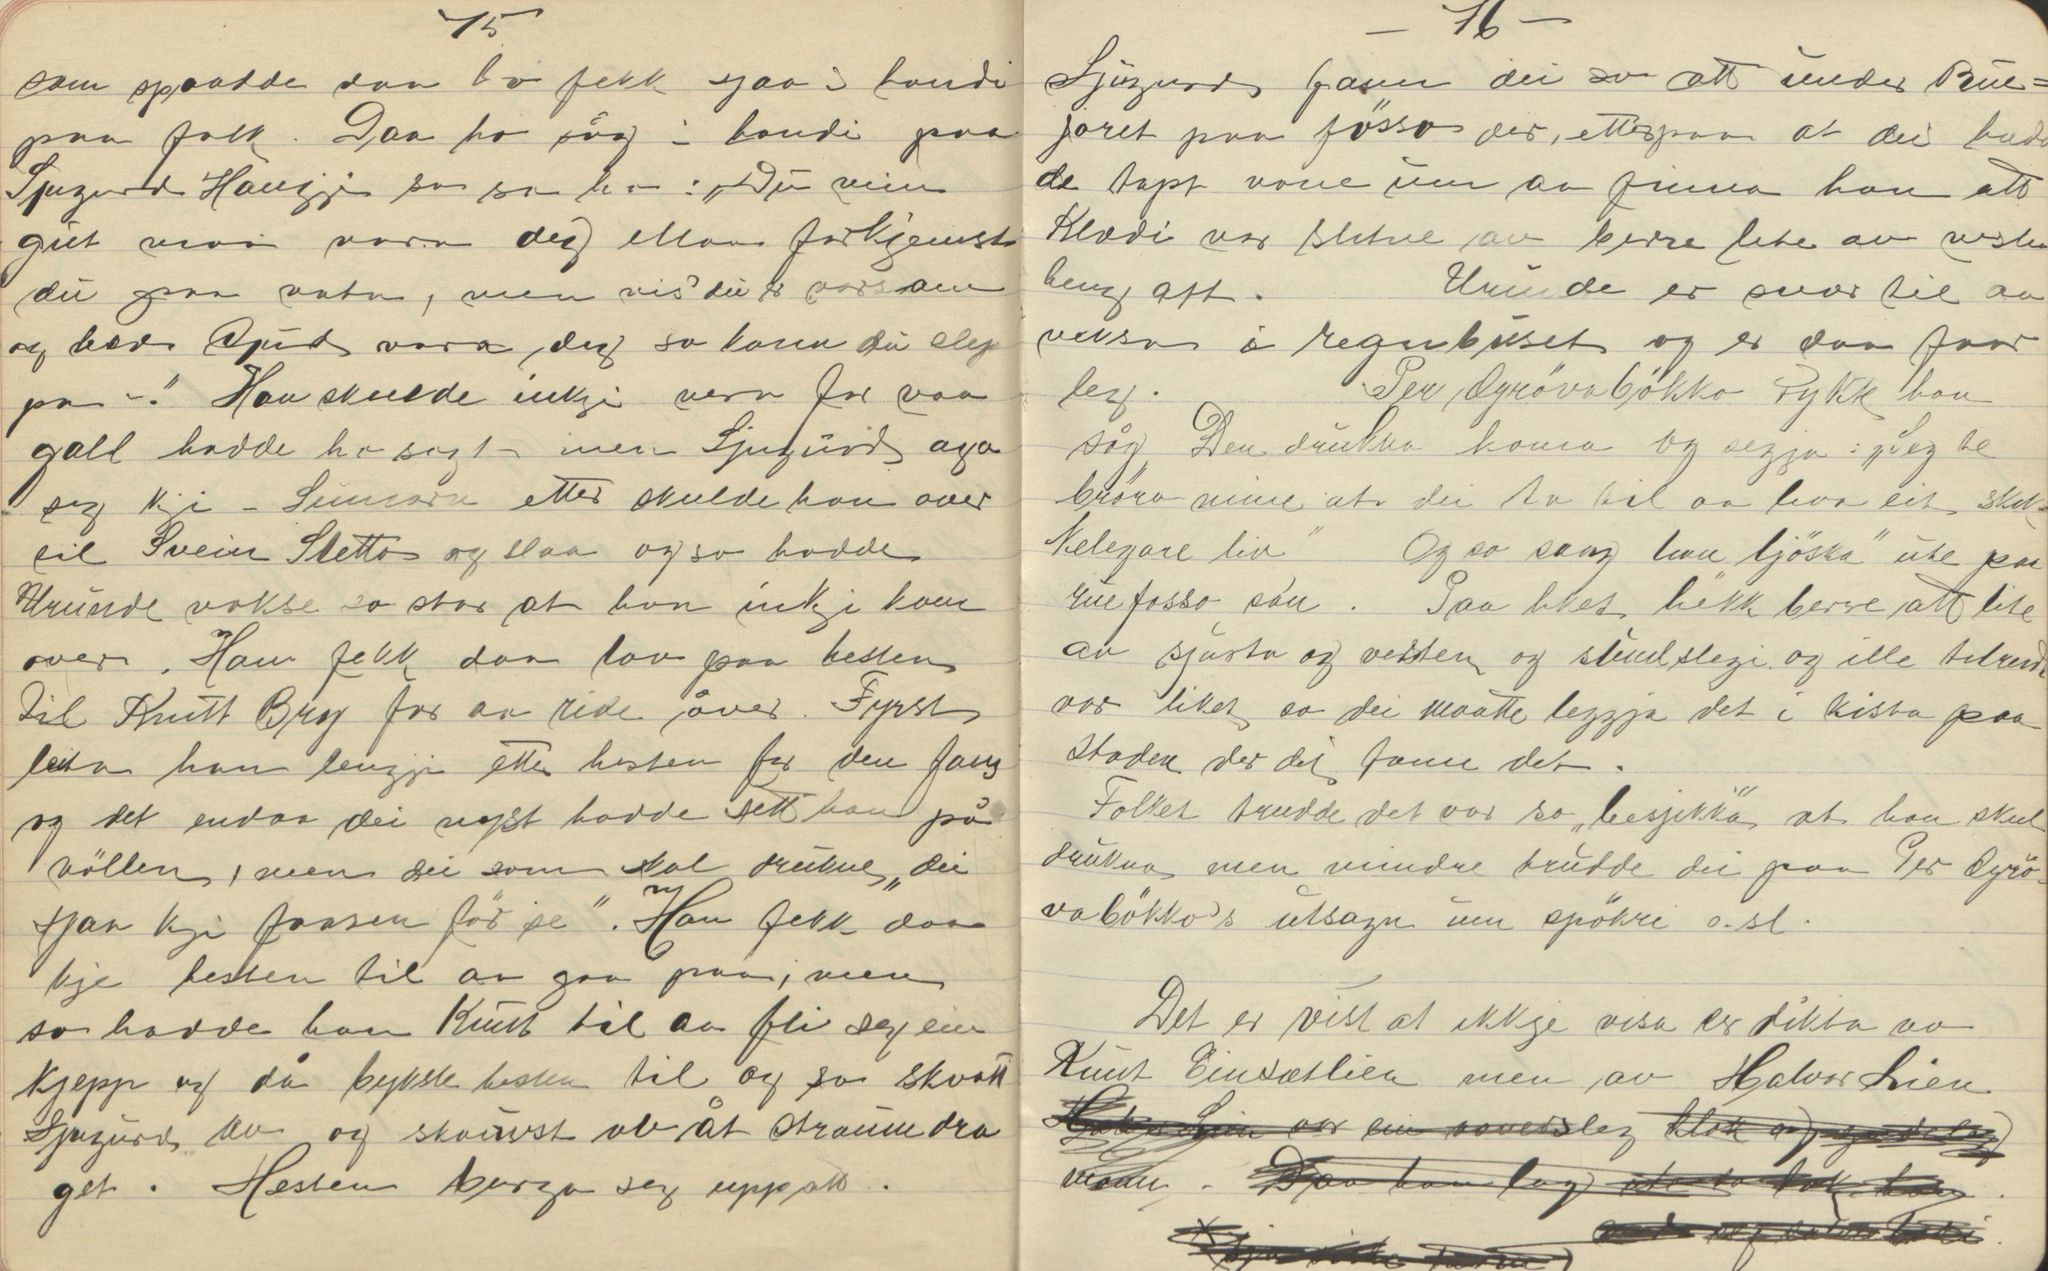 75
som spaadde daa ho fekk sjaa i handi
paa folk. Daa ho såg i handi paa
Sjugurd Haugji so sa ho: „Du min
gut maa vara deg ellaa forkjemst
du paa vatn, men vis du er varsam
og bed Gjud vara deg so kann du slep
pa –." Han skulde inkji vera for vaa
gall hadde ho sagt – men Sjugurd aga
seg kji – Sumaren etter skulde han over
til Svein Sletto og slaa og so hadde
Urunde vakse so stor at han inkji kom
over. Han fekk daa lov paa hesten
til Knut Bry for aa ride över. Fyrst
leita han lengji ette hesten for den fans
og det endaa dei nyst hadde sett han på
völlen, men dei som skal drukne „dei
sjaa kji faasen för se". Han fekk daa
kje hesten til aa gaa paa, men
so hadde han Knut til aa fli seg ein
kjepp og då bykste hesten til og so skvatt
Sjugurd av og skauvst ov åt straumdra
get. Hesten berga seg upp att.
– 76 –
Sjugurd fann dei so att under Bue=
joret paa fösso der, etterpaa at dei had
de tapt vone um aa finna han att
Klædi var slitne av berre lite av vesten
heng att. Urunde er svær til aa
veksa i regnbuset og er daa faar
leg. Per Gyrövabökko tykk han
såg Den drukna koma og segja: „Seg te
bröra mine at dei ta til aa leva eit skik-
kelegare liv" Og so sang han ljöska" ute paa
ruefosso sån. Paa liket hekk berre att lite
av sjurta og vesten og sundslegi og ille tilreidt
var liket so dei maatte leggja det i kista paa
staden der dei fann det.
Folket trudde det var so „besjikka" at han skul
drukna men mindre trudde dei paa Per Gyrö-
vabökko's utsagn um spökri o.sl.
Det er vist at ikkje visa er dikta av
Knut Einsætlien men av Halvor Lien
mann.